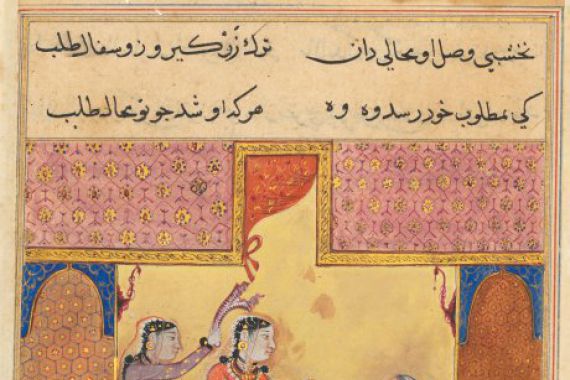 نخشبی وصل او محالی دان ترک زر کیر و زو سفال طلب
کی بمطلوب خود رسد وه وه هرکه او شد چو تو محال طلب